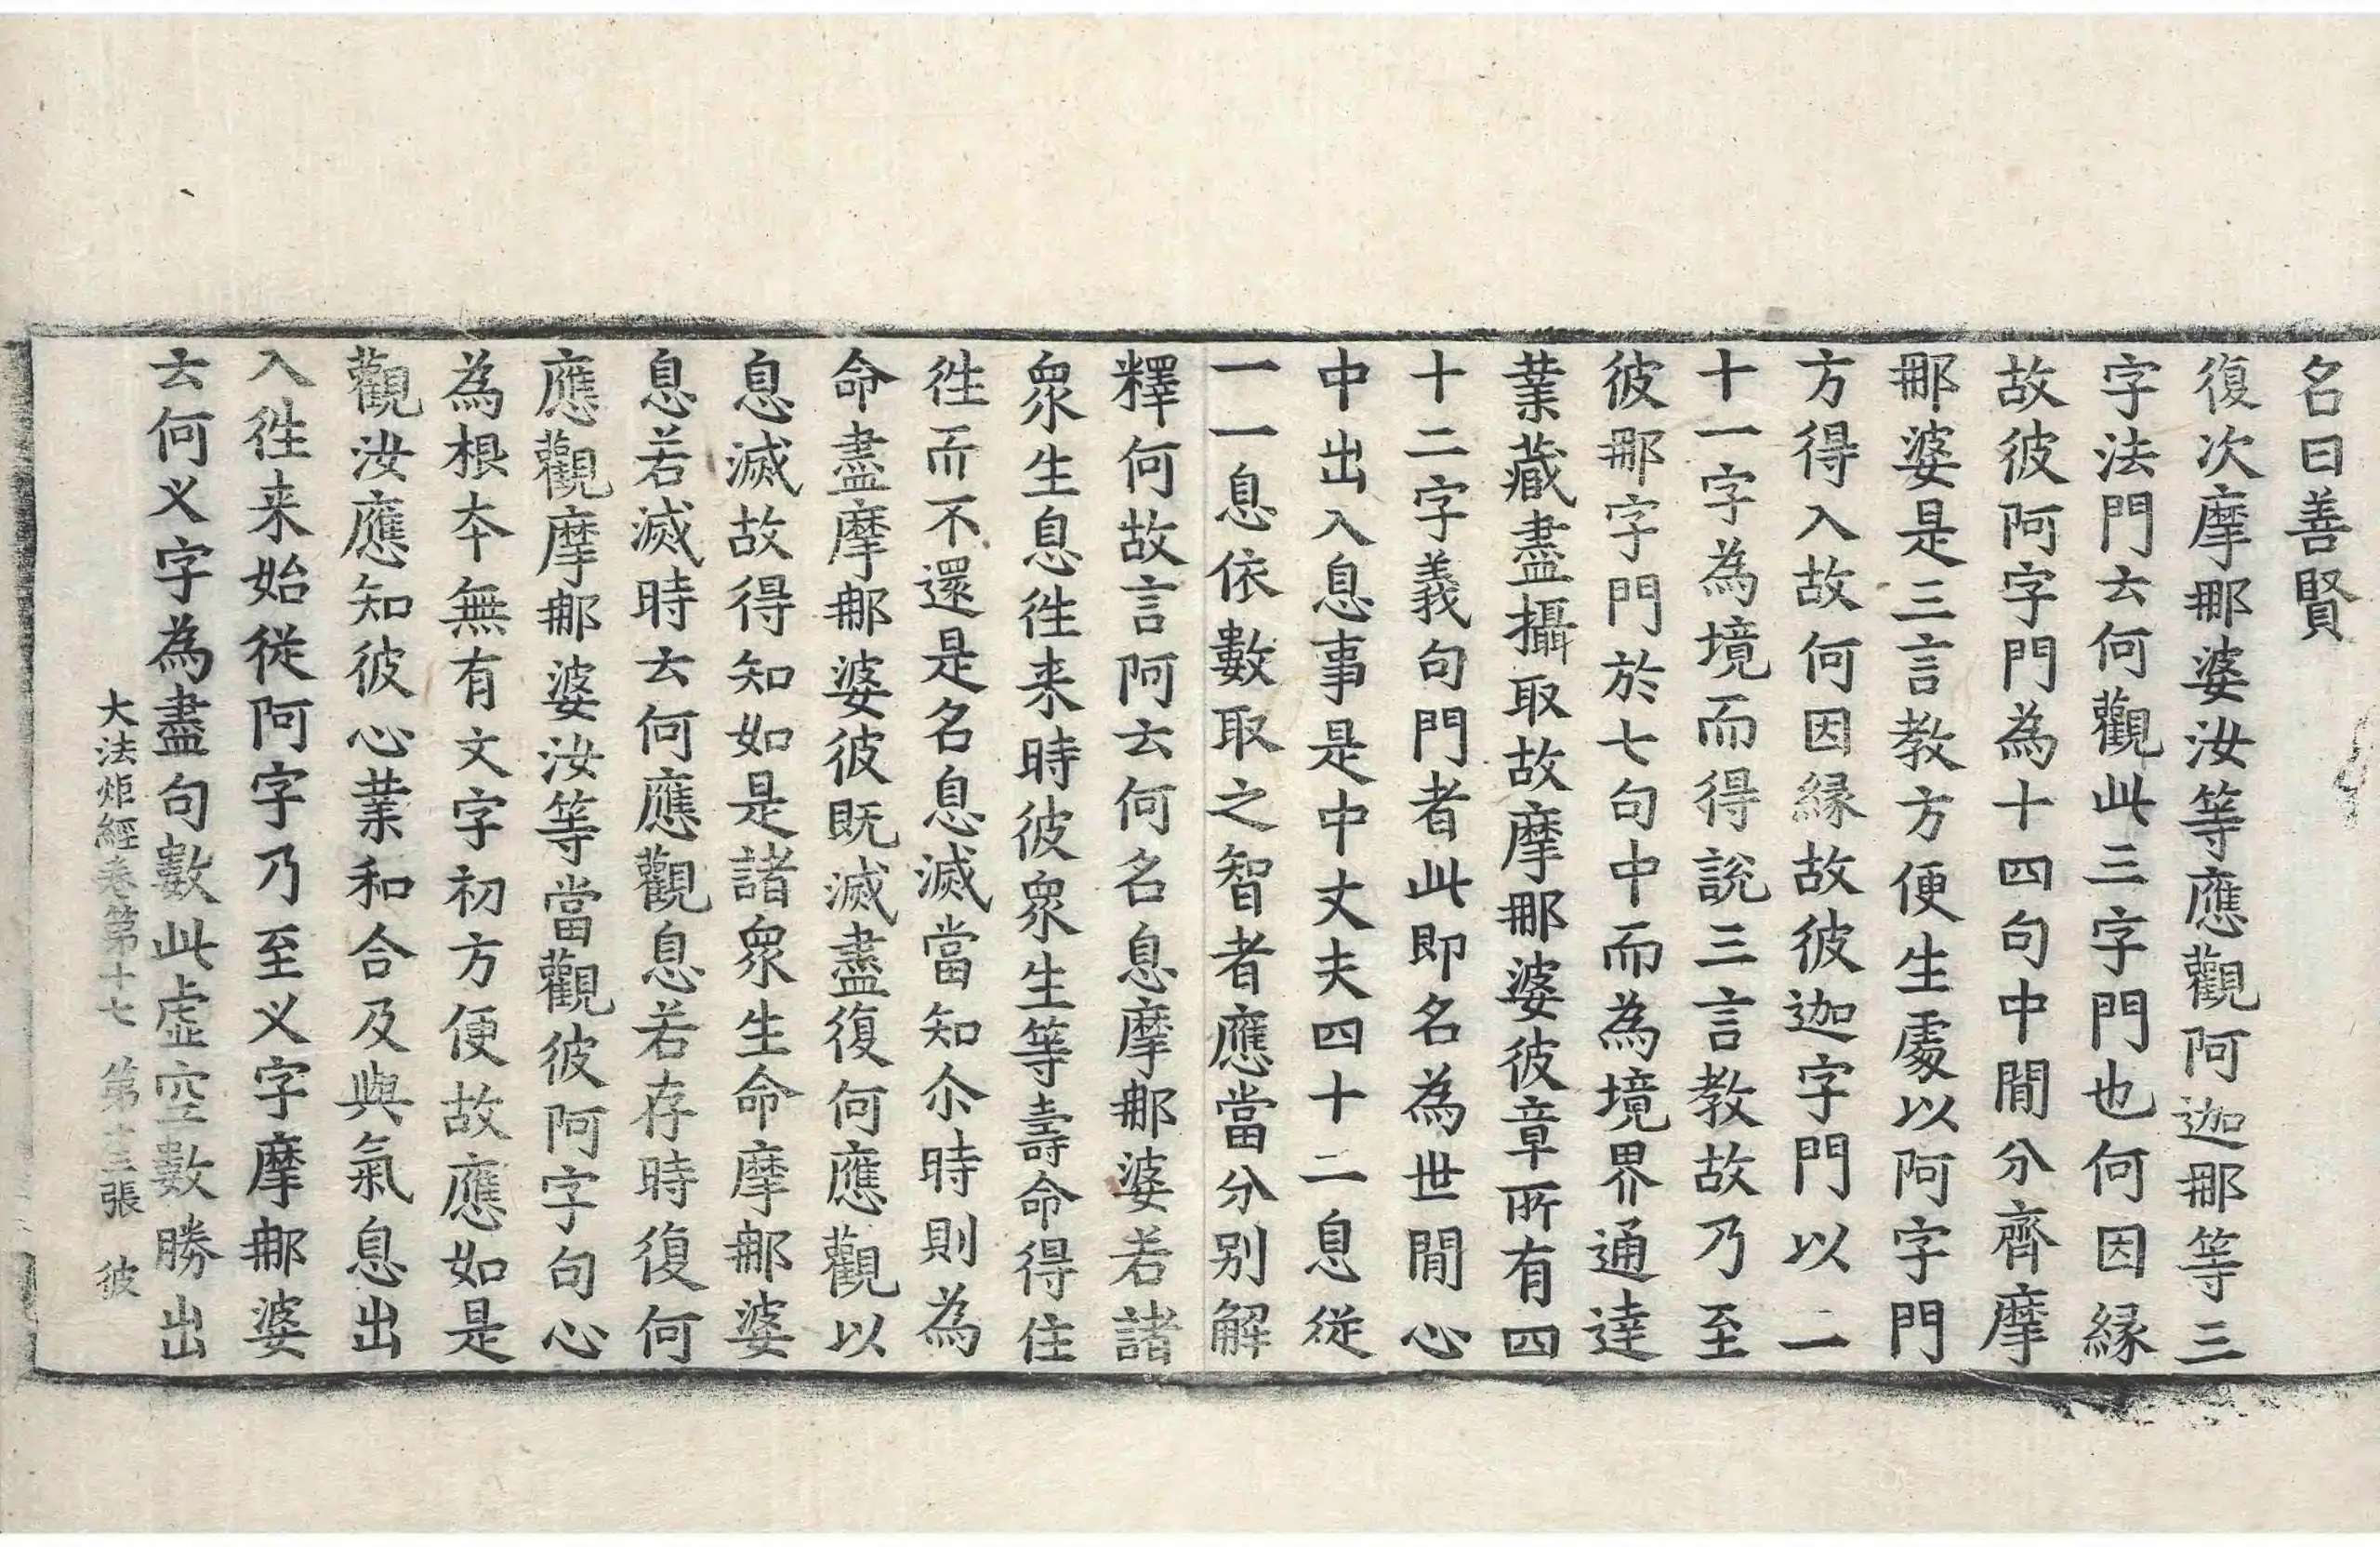 名曰善賢
復次摩㖠婆汝等應觀阿迦㖠等三
字法門云何觀此三字門也何因縁
故彼阿字門為十四句中間分齊摩
㖠婆是三言教方便生處以阿字門
方得入故何因縁故彼迦字門以二
十一字為境而得說三言教故乃至
彼㖠字門於七句中而為境界通達
業藏盡攝取故摩㖠婆彼章所有四
十二字義句門者此即名為世間心
中出入息事是中丈夫四十二息從
一一息依數取之智者應當分别解
釋何故言阿云何名息摩㖠婆若諸
衆生息徃来時彼衆生等壽命得住
徃而不還是名息滅當知尒時則為
命盡摩㖠婆彼既滅盡復何應觀以
息滅故得知如是諸衆生命摩㖠婆
息若滅時云何應觀息若存時復何
應觀摩㖠婆汝等當觀彼阿字句心
為根夲無有文字初方便故應如是
觀汝應知彼心業和合及與氣息出
入徃来始從阿字乃至义字摩㖠婆
云何义字為盡句數此虛空數勝出
大法炬經卷第十七 第十三張 彼